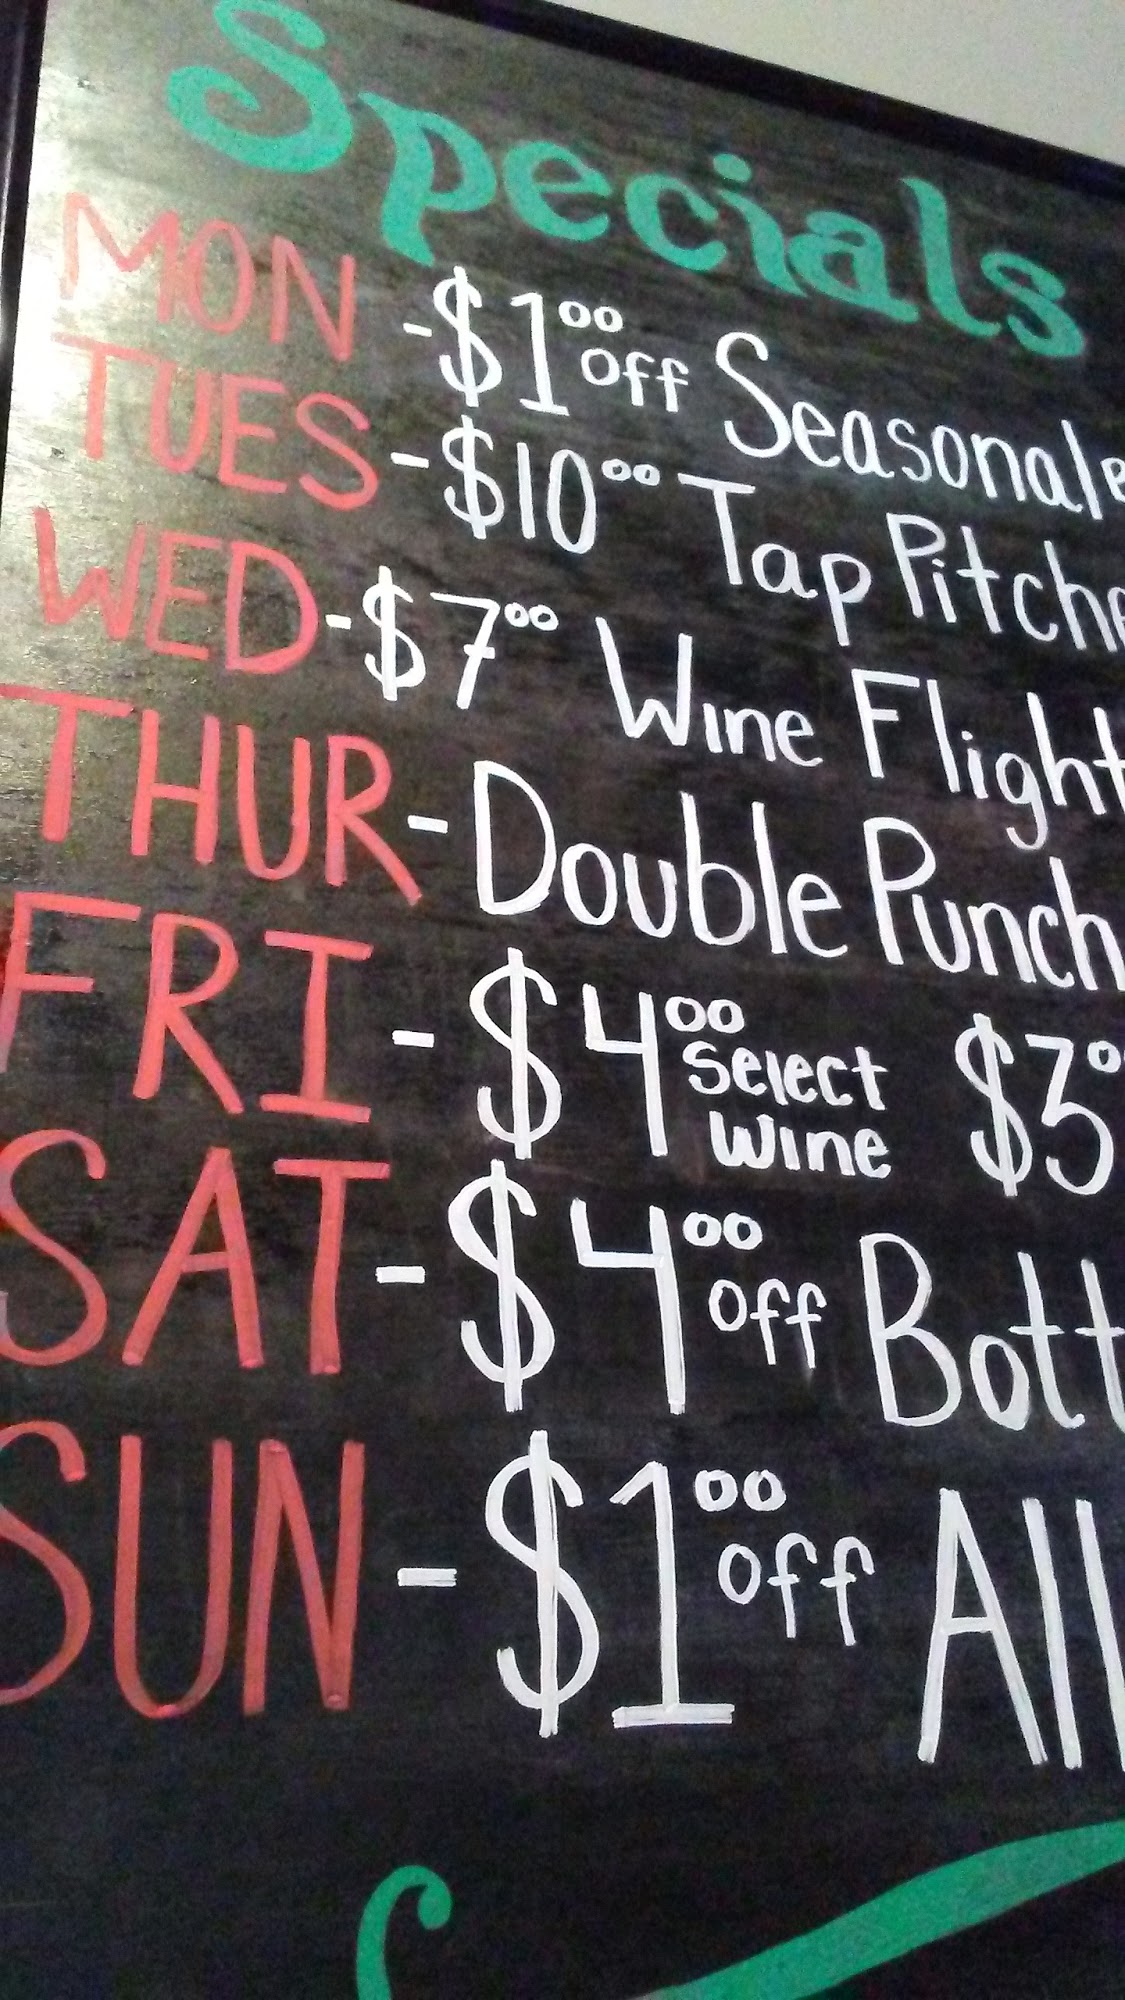 Specials
MON -$1.00 off Seasonale
TUES -$10.00 Tap Pitche
WED -$7.00 Wine Flight
THUR - Double Punch
FRI - $4.00 Select Wine $3.0
SAT - $4.00 off Bott
SUN - $1.00 off All